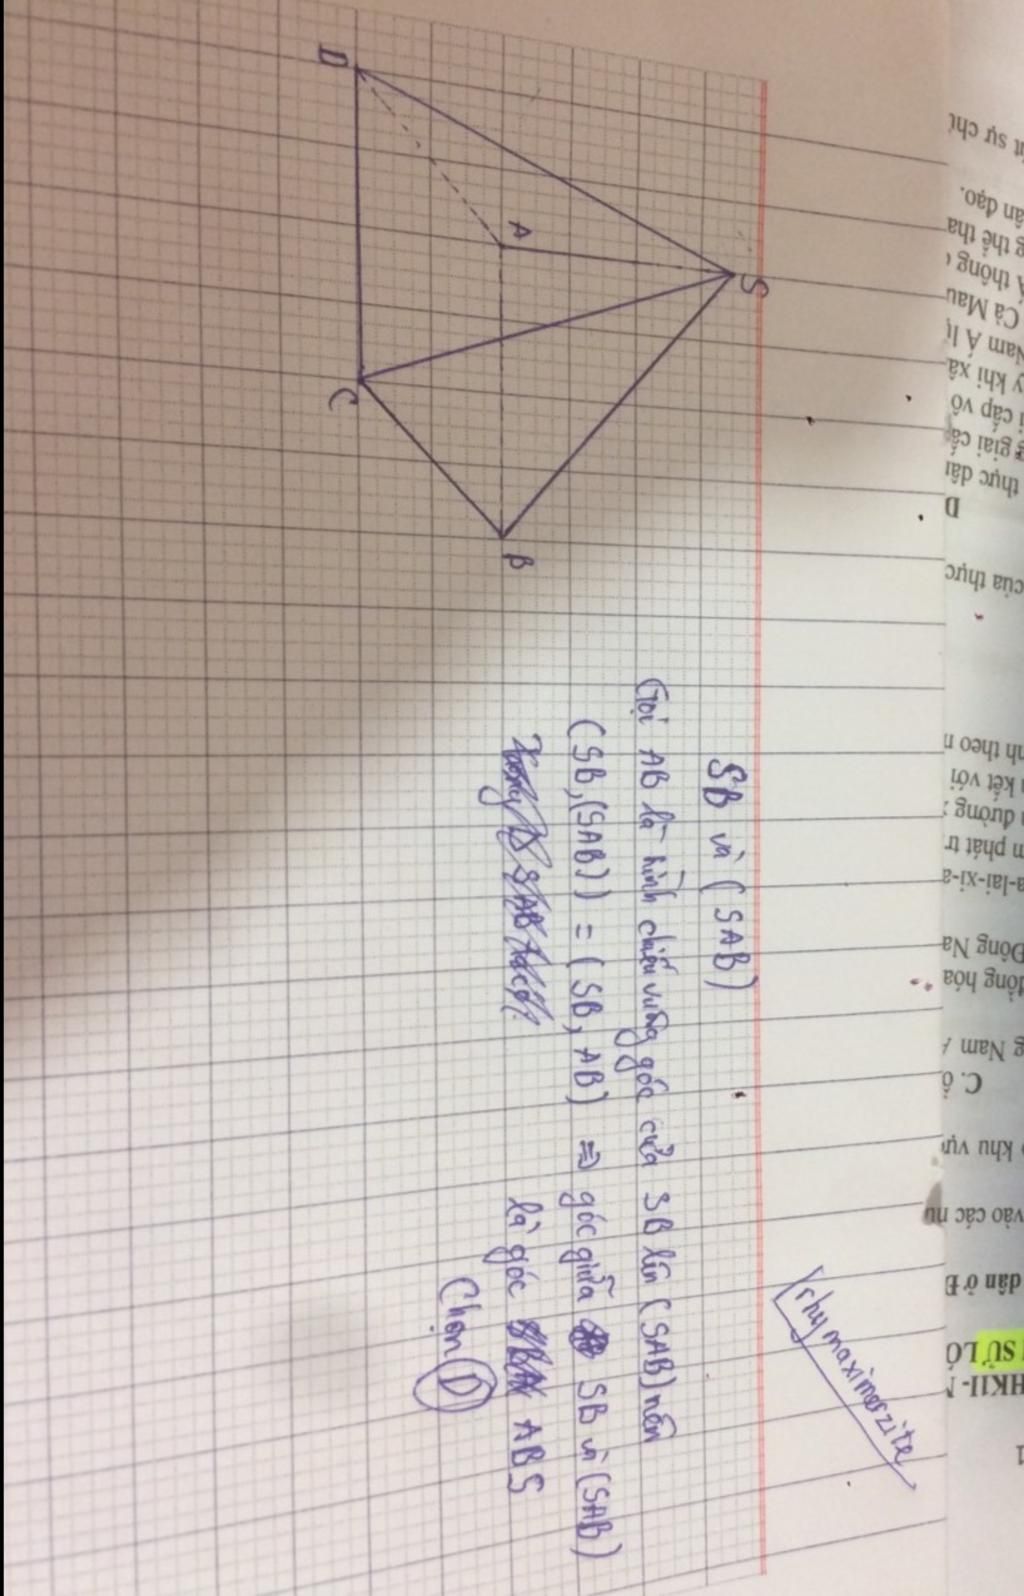 S
A
D
B
C
SB và (SAB)
Gọi AB là hình chiếu vuông góc của SB lên (SAB) nên
(SB,(SAB)) = (SB, AB) => góc giữa SB và (SAB)
là góc ABS
Chọn D
rhymaximoszite
ân đạo.
g thế tha
Á thông
Cà Mau
Nam Á
y khi xâ
i cấp vô
g giai cấ
thực dân
D
của thực
nh theo
kết với
đường
m phát tr
a-lai-xi-a
Đông Na
đồng hóa
g Nam
C. ô
khu vực
vào các nư
dân ở Đ
SỬ LỚ
HKII-
1